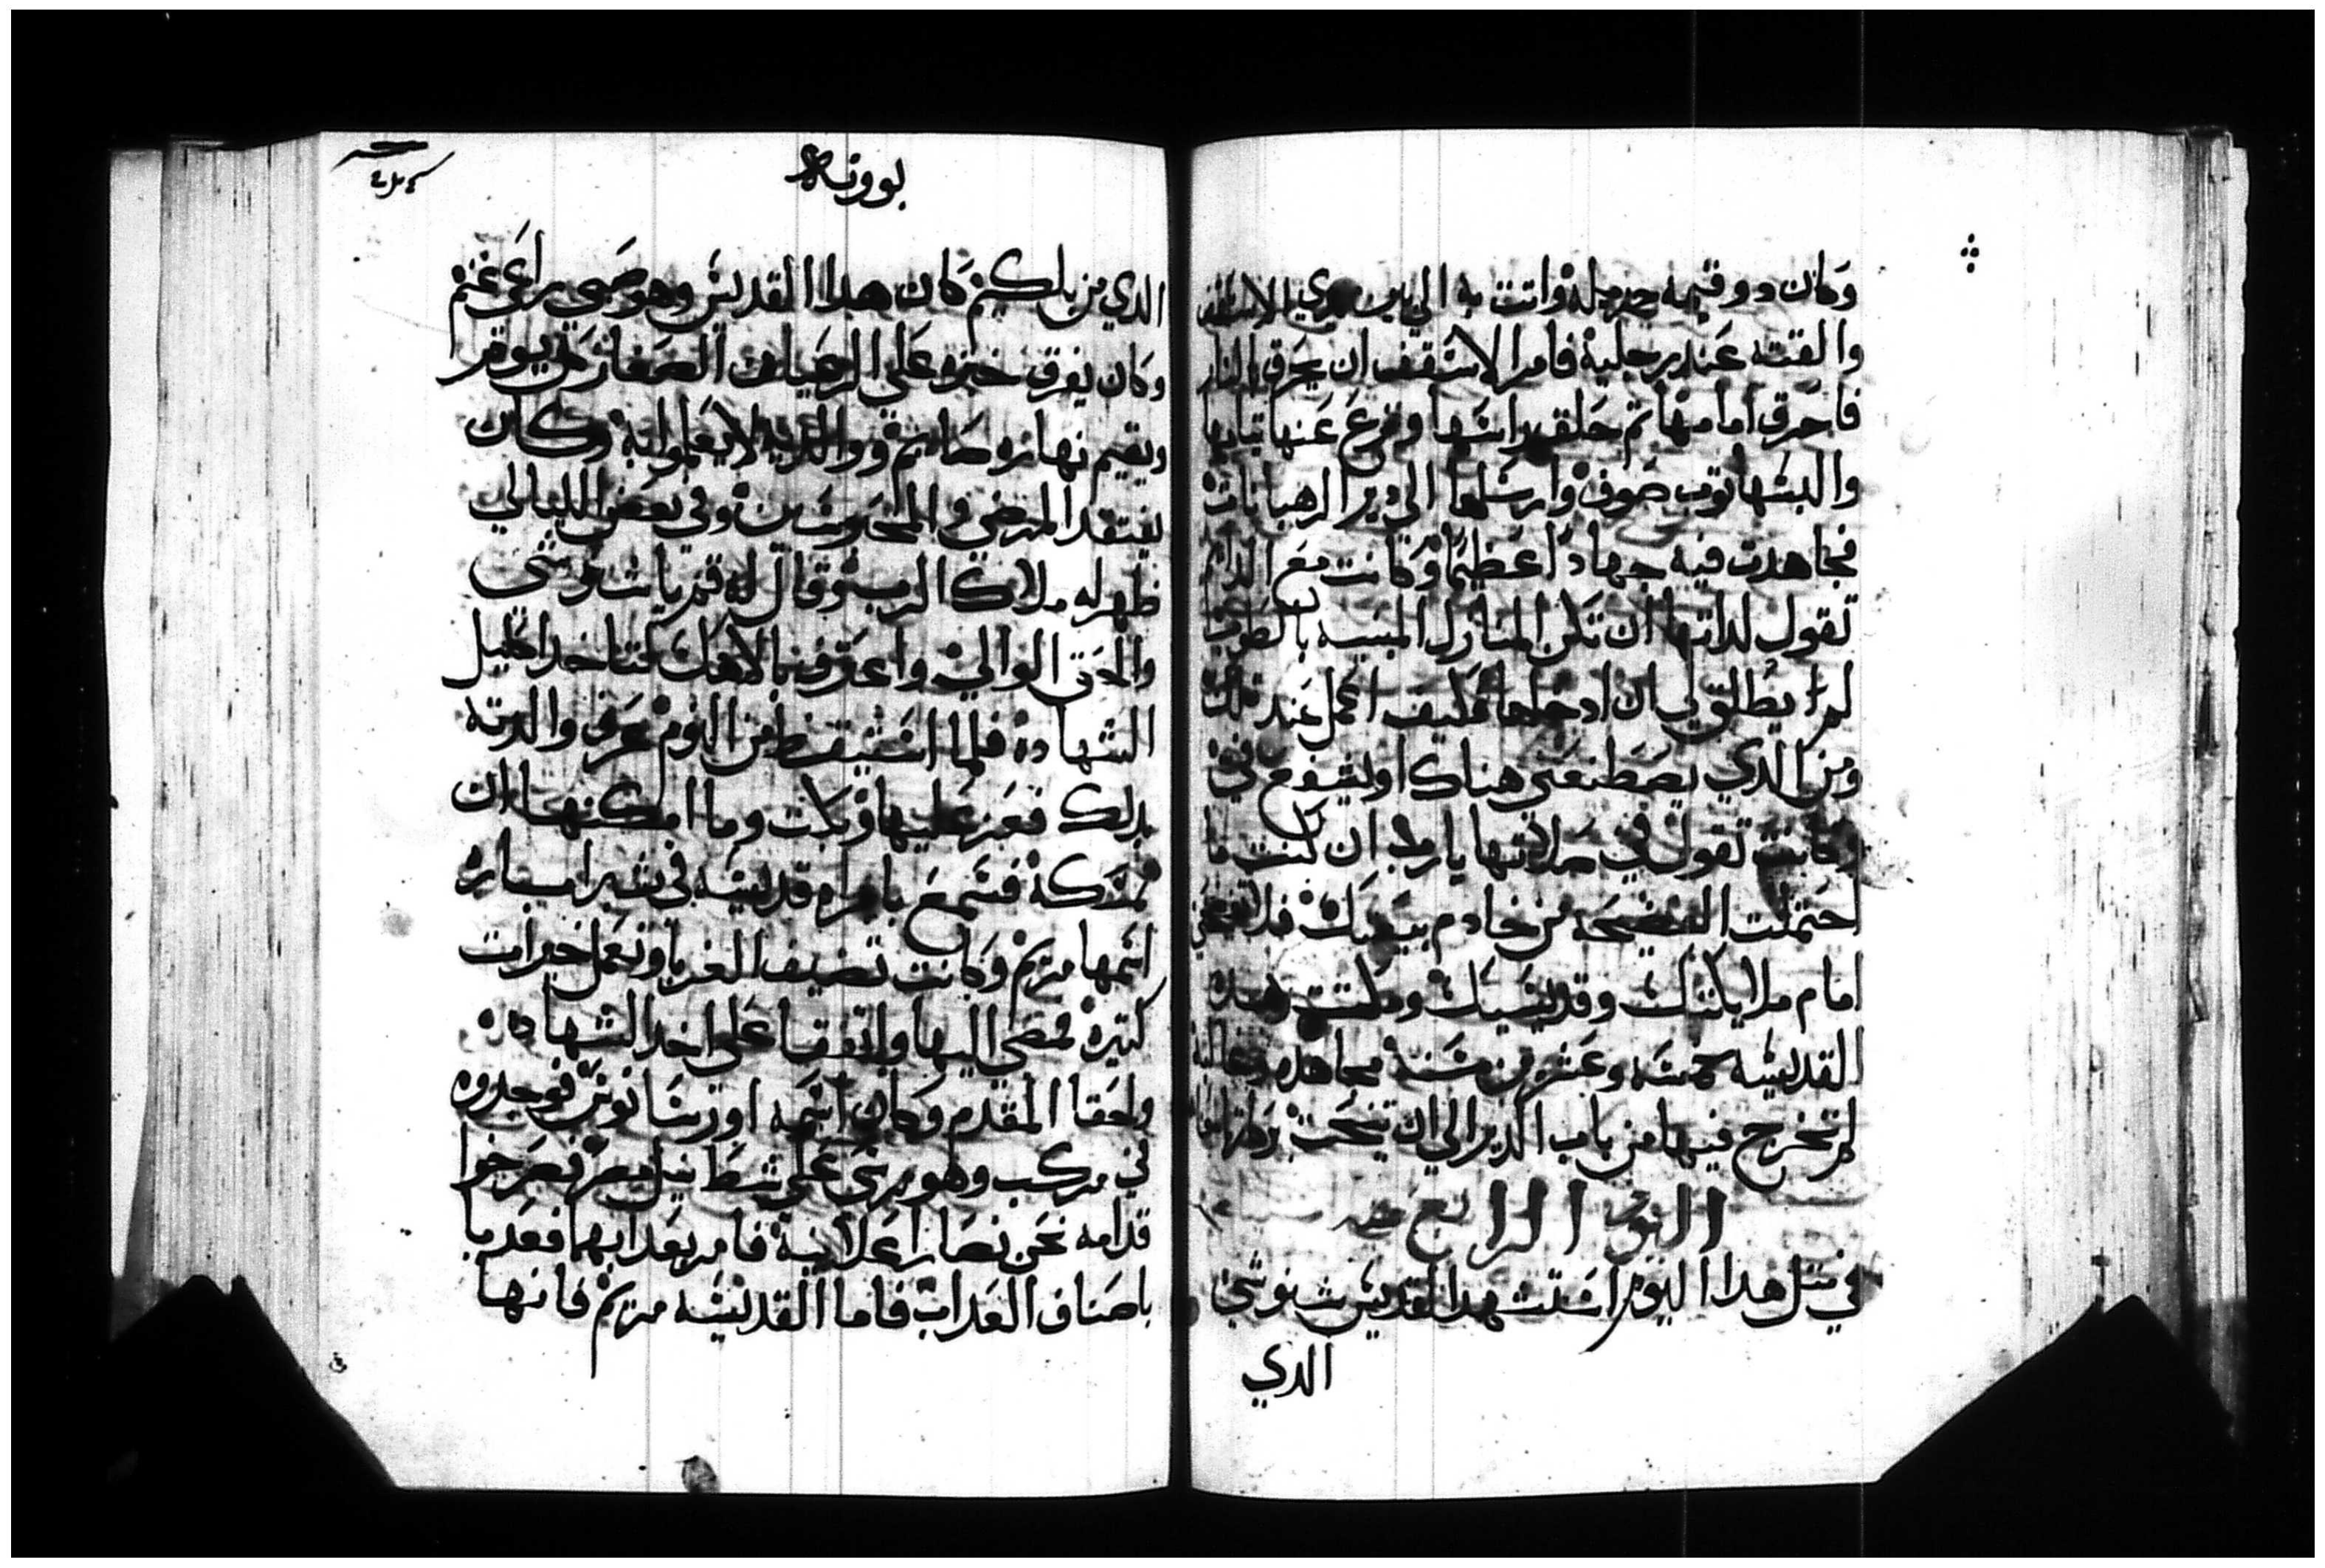 وكان دو قيمه جزيله واتت به الي بين يدي الاسقف
والقته عند رجليه فامر الاسقف ان يحرق بالنار
فاحرق امامها تم حلق راسها ونزع عنها تيابها
والبسها توب صوف وارسلها الي دير الرهبانات
فجاهدت فيه جهادا عظيما وكانت مع
تقول لداتها ان تكن المنازل المبنيه بالطوب
لم يطلق لي ان ادخلها فكيف اعمل عند
ومن الدي يصطنعني هناك او يشفع في
وكانت تقول في صلاتها يارب ان كنت ما
احتملت الفضيحه من خادم بيعتك فلا تفضحني
امام ملايكتك وقديسيك ومكتت هده
القديسه خمسه وعشرين سنه مجاهده
لم تخرج فيها من باب الدير الي ان تنيحت
اليوم الرابع
في متل هدا اليوم استشهد القديس شنوشي
الدي
بوونه
الدي من بلكيم كان هدا القديس وهو صبي راعي غنم
وكان يفرق خبزه علي الرعيان الصغار كل يوم
ويقيم نهاره صايم ووالديه لا يعلموا به وكان
يفتقد المرضي و المحبوسين وفي بعض الليالي
ظهر له ملاك الرب وقال له قم يا شنوشي
والحق الوالي واعترف بالاهك لتاخد اكليل
الشهاده فلما استيقظ من النوم عرف والدته
بدلك فعز عليها وبكت وما امكنها ان
تمسكه فسمع بامراه قديسه في شبرا
اسمها مريم وكانت تضيف الغربا وتعمل خيرات
كتيره فمضي اليها واتفقا علي اخد الشهاده
ولحقا المقدم وكان اسمه اورشانوس فوجدوه
في مركب وهو مرسي علي شط نيل مصر فصرخوا
قدامه نحن نصارا علانية فامر بعدابهما فعدبا
باصناف العداب فاما القديسه مريم فانها